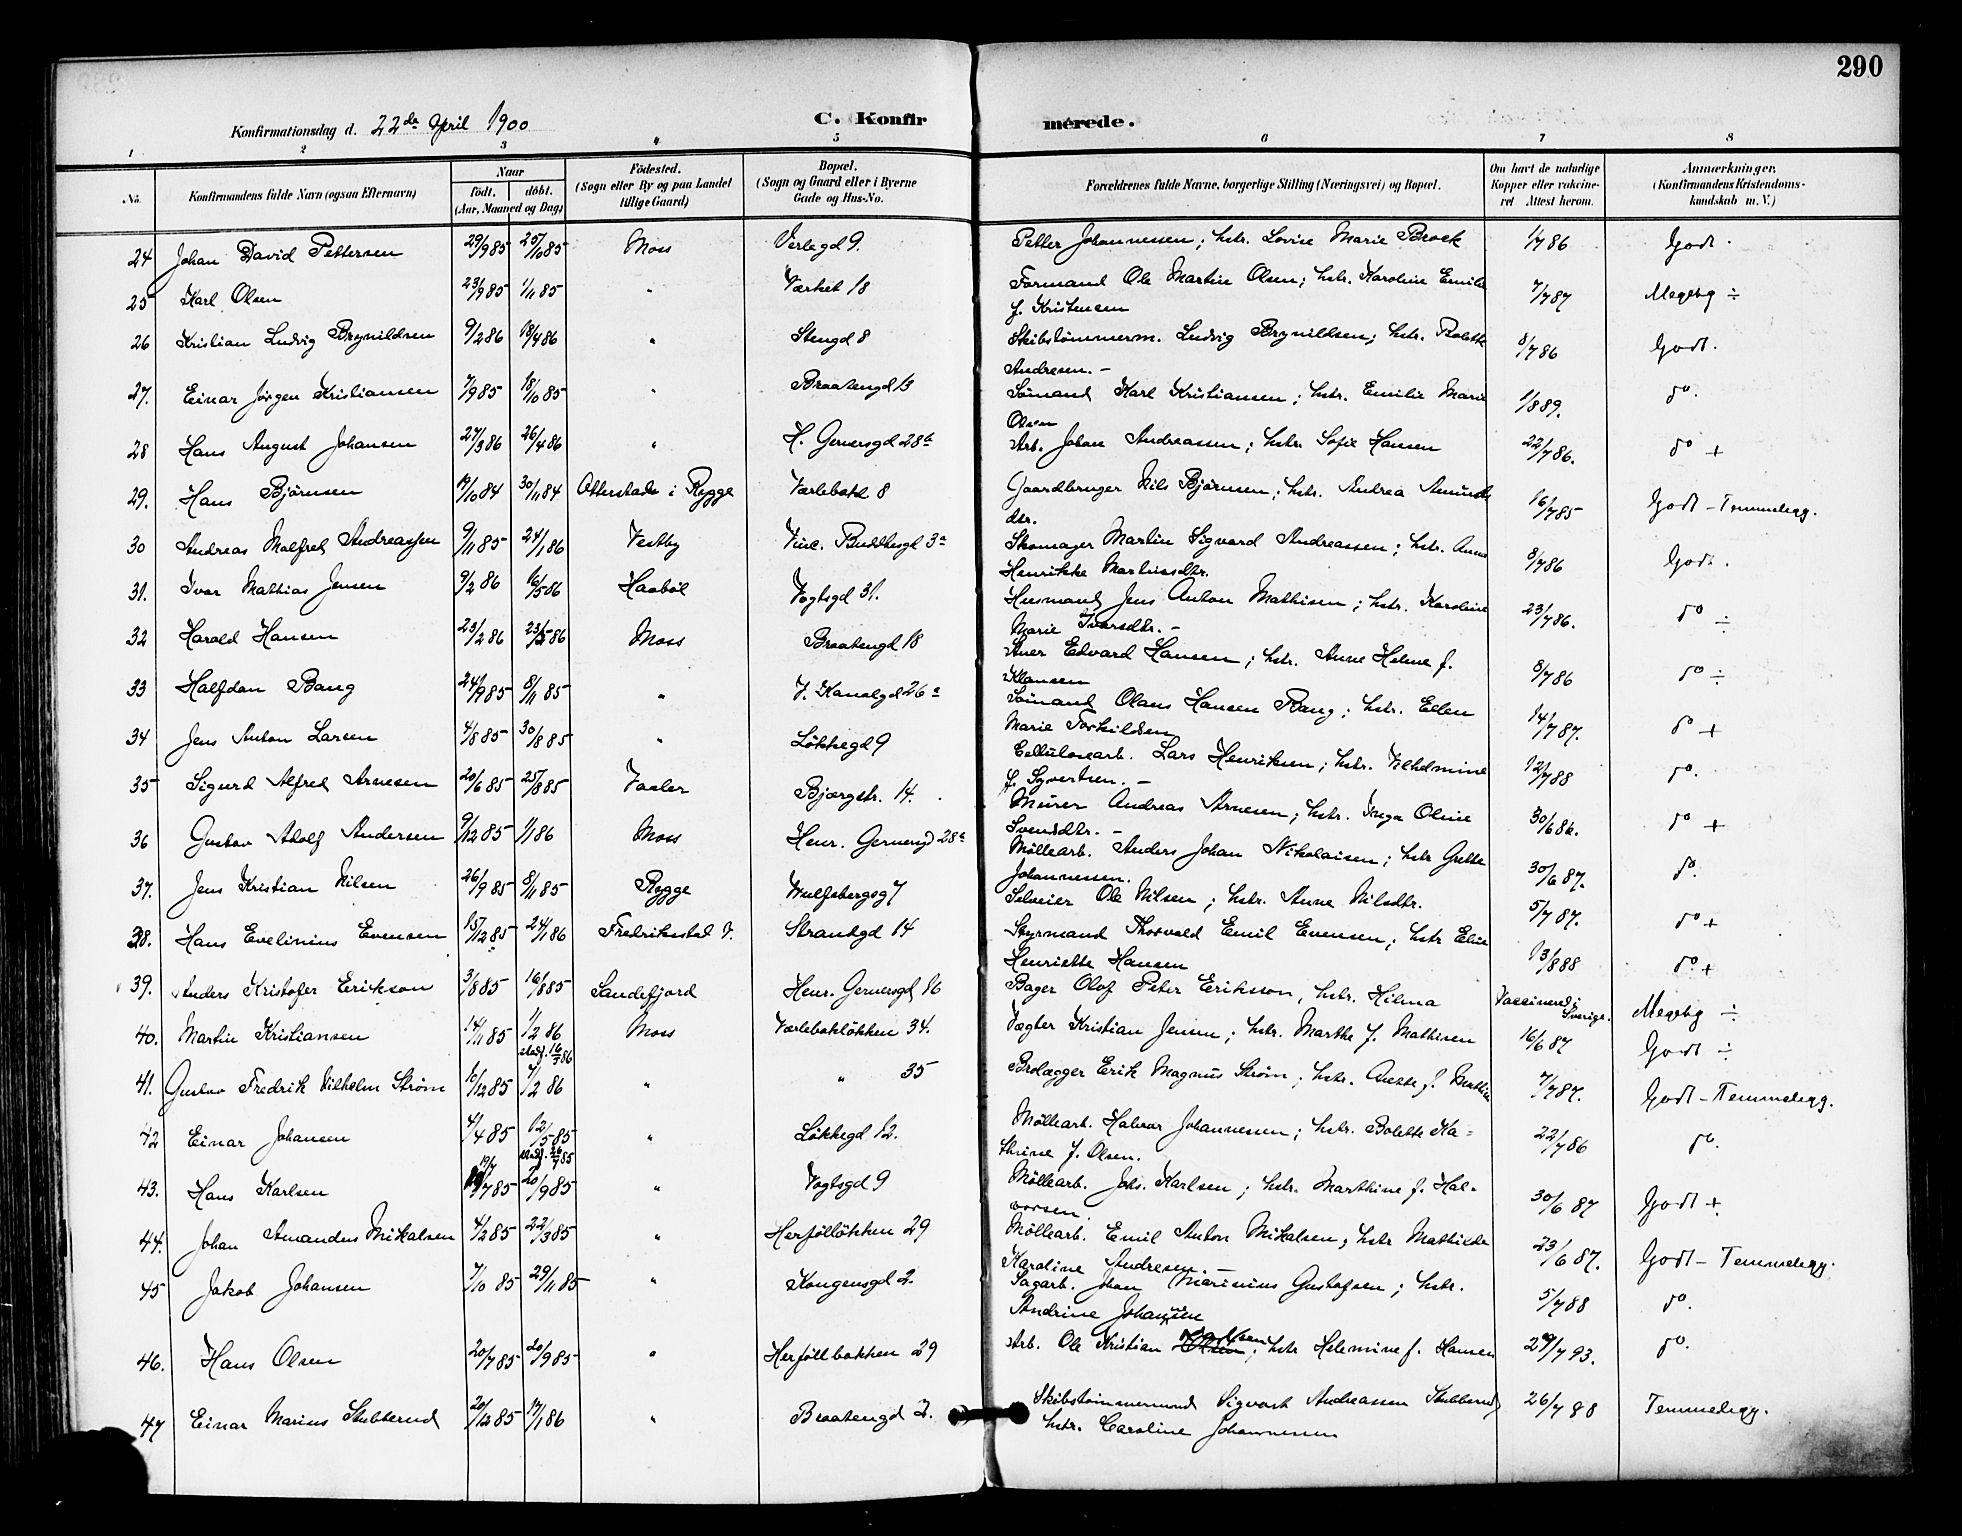 290
Konfirmationsdag d. 22de April 1900 C. Konfirmerede.
1 2 3 4 5 6 7 8
No. Konfirmandens fulde Navn (ogsaa Efternavn) Naar født. døbt. (Aar, Maaned og Dag) Födested. (Sogn eller By og paa Landet tillige Gaard) Bopæl. (Sogn og Gaard eller i Byerne Gade og Hus-No. Forældrenes fulde Navne, borgerlige Stilling (Næringsvei) og Bopæl. Om havt de naturlige Kopper eller vakcineret Attest herom. Anmærkninger. (Konfirmandens Kristendomskundskab m. V.)
24 Johan David Pettersen 29/9 85 25/10 85 Moss Verlegd 9. Petter Johannessen; hstr. Lovise Marie Brock 1/7 86 Godt.
25 Karl Olsen 23/9 85 1/11 85 " Værket 18 Formand Ole Martin Olsen; hstr. Karoline Emilie
f. Kristensen 7/7 87 Megetg ÷
26 Kristian Ludvig Brynildsen 9/2 86 18/4 86 " Stengd 8 Skibstømmerm. Ludvig Brynildsen; hstr. Bolette
Andresen. – 8/7 86 Godt.
27. Einar Jørgen Kristiansen 7/9 85 18/10 85 " Braatengd 13 Sømand Karl Kristiansen; hstr. Emilie Marie
Olsen 1/8 89. do.
28 Hans August Johansen 27/3 86 26/4 86 " H. Gernersgd 28b Arb. Johan Andreassen; hstr. Sofie Hansen 22/7 86. do +
29. Hans Bjørnsen 17/10 84 30/11 84 Otterstad i Rygge Værlebakk 8 Gaardbruger Nils Bjørnsen; hstr. Andrea Amunds
dtr. 16/7 85 Godt – Temmeligg.
30 Andreas Malfred Andreassen 9/11 85 24/1 86 Vestby Vinc. Buddhesgd 3a Skomager Martin Sigvard Andreassen; hstr. Anne
Henrikke Martinsdtr. 8/7 86 Godt.
31. Ivar Mathias Jensen 9/2 86 16/5 86 Haabøl Vogtsgd 31. Husmand Jens Anton Mathisen; hstr. Karoline
Marie Ivarsdtr. – 23/7 86. do ÷
32 Harald Hansen 23/2 86 23/5 86 Moss Braatengd 18 Sner Edvard Hansen; hstr. Anne Helene f.
Klausen 8/7 86 do ÷
33 Halfdan Bang 24/9 85 8/11 85 " V. Kanalgd 26a Sømand Olaus Hansen Bang; hstr. Ellen
Marie Torkildsen 14/7 87. do +
34 Jens Anton Larsen 4/8 85 30/8 85 " Løkkegd 9 Cellulosearb. Lars Henriksen; hstr. Vilhelmine
f. Syvertsen. – 12/7 88 do.
35 Sigurd Alfred Arnesen 20/6 85 25/8 85 Vaaler Bjærgstr. 14. Murer Andreas Arnesen; hstr. Inga Oline
Svendsdtr. – 30/6 86. do +
36 Gustav Adolf Andersen 9/12 85 1/1 86 Moss Henr. Gernersgd 28a Møllearb. Anders Johan Nikolaisen; hstr Grethe
Johannessen. 30/6 87. do.
37. Jens Kristian Nilsen 26/9 85 8/11 85 Rygge Wulfsbergsg 7 Selveier Ole Nilsen; hstr. Anne Nilsdtr. 5/7 87. do +
38. Hans Evelinius Evensen 15/12 85 24/1 86 Fredriksstad V. Strandgd 14 Styrmand Thorvald Emil Evensen; hstr Elise
Henriette Hansen 13/8 88 do +
39. Anders Kristofer Erikson 3/8 85 16/8 85 Sandefjord Henr. Gernersgd 16 Bager Olof Peter Eriksson, hstr. Hilma Vaccinered i Sverige. Megetg ÷
40. Martin Kristiansen 14/11 85 1/2 86 stadf. 16/5 86 Moss Værlebakløkken 34. Vægter Kristian Jensen; hstr. Marthe f. Mathisen 16/6 87 Godt ÷
41. Gustav Fredrik Vilhelm Strøm 10/12 85 7/2 86 " " 35 Brolægger Erik Magnus Strøm; hstr. Anette f. Mathisen 7/7 87. Godt – Temmeligg.
42 Einar Johansen 4/4 85 12/5 85 stadf. 26/7 85 " Løkkegd 12. Møllearb. Halvor Johannessen; hstr. Bolette Ka-
thrine f. Olsen. 22/7 86 do.
43. Hans Karlsen 19/7 85 20/9 85 " Vogtsgd 9 Møllearb. Johs. Karlsen; hstr. Marthine f. Hal-
vorsen. 30/6 87 Godt +
44. Johan Amandus Mikalsen 4/2 85 22/3 85 " Herføllløkken 29 Møllearb. Emil Anton Mikalsen; hstr Mathilde
Karoline Andresen. – 23/6 87. Godt – Temmeligg.
45 Jakob Johansen 7/10 85 29/11 85 " Kongensgd 2. Sagarb. Johan Marinius Gustafsen; hstr.
Andrine Johannsen 5/7 88 do.
46. Hans Olsen 20/7 85 20/9 85 " Herføllbakken 29 Arb. Ole Kristian Olsen; hstr Helemine f. Hansen 29/7 93. do.
47 Einar Marius Stubberud 20/12 85 17/1 86 " Braatengd 2. Skibstømmermand Sigvart Andreassen Stubberud,
hstr. Caroline Johannessen 26/7 88 Temmeligg.